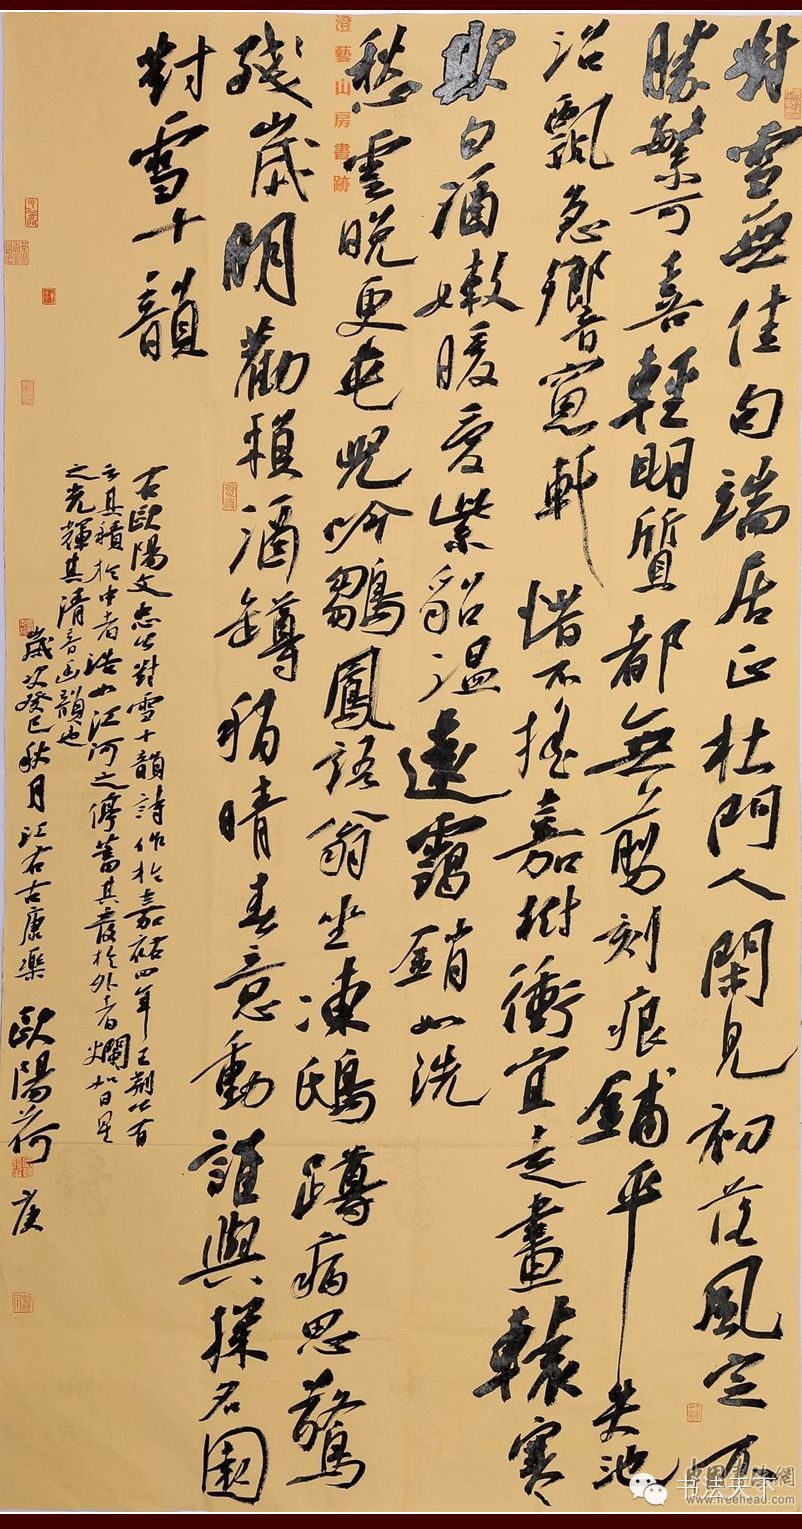 對雪無佳句端居正杜門人閑見初落風定不
勝繁可喜輕明質都無剪刻痕鋪平失池
沼飄急響窗軒惜不搖嘉樹衝宜走畫轅寒
欺白酒嫩暖愛紫貂溫遠靄銷如洗
澄藝山房書跡
愁雲晚更屯兒吟鶵鳳語翁坐凍鴟蹲病思驚
殘歲朋歡賴酒罇稍晴春意動誰與探名園
對雪十韻
右歐陽文忠公對雪十韻詩作於嘉祐四年王荊公有
云其積於中者浩如江河之停蓄其發於外者爛如日星
之光輝其清音幽韻也
歲次癸巳秋月江右古康樂 歐陽荷庚
书法天下
中国书法網
www.freehead.com